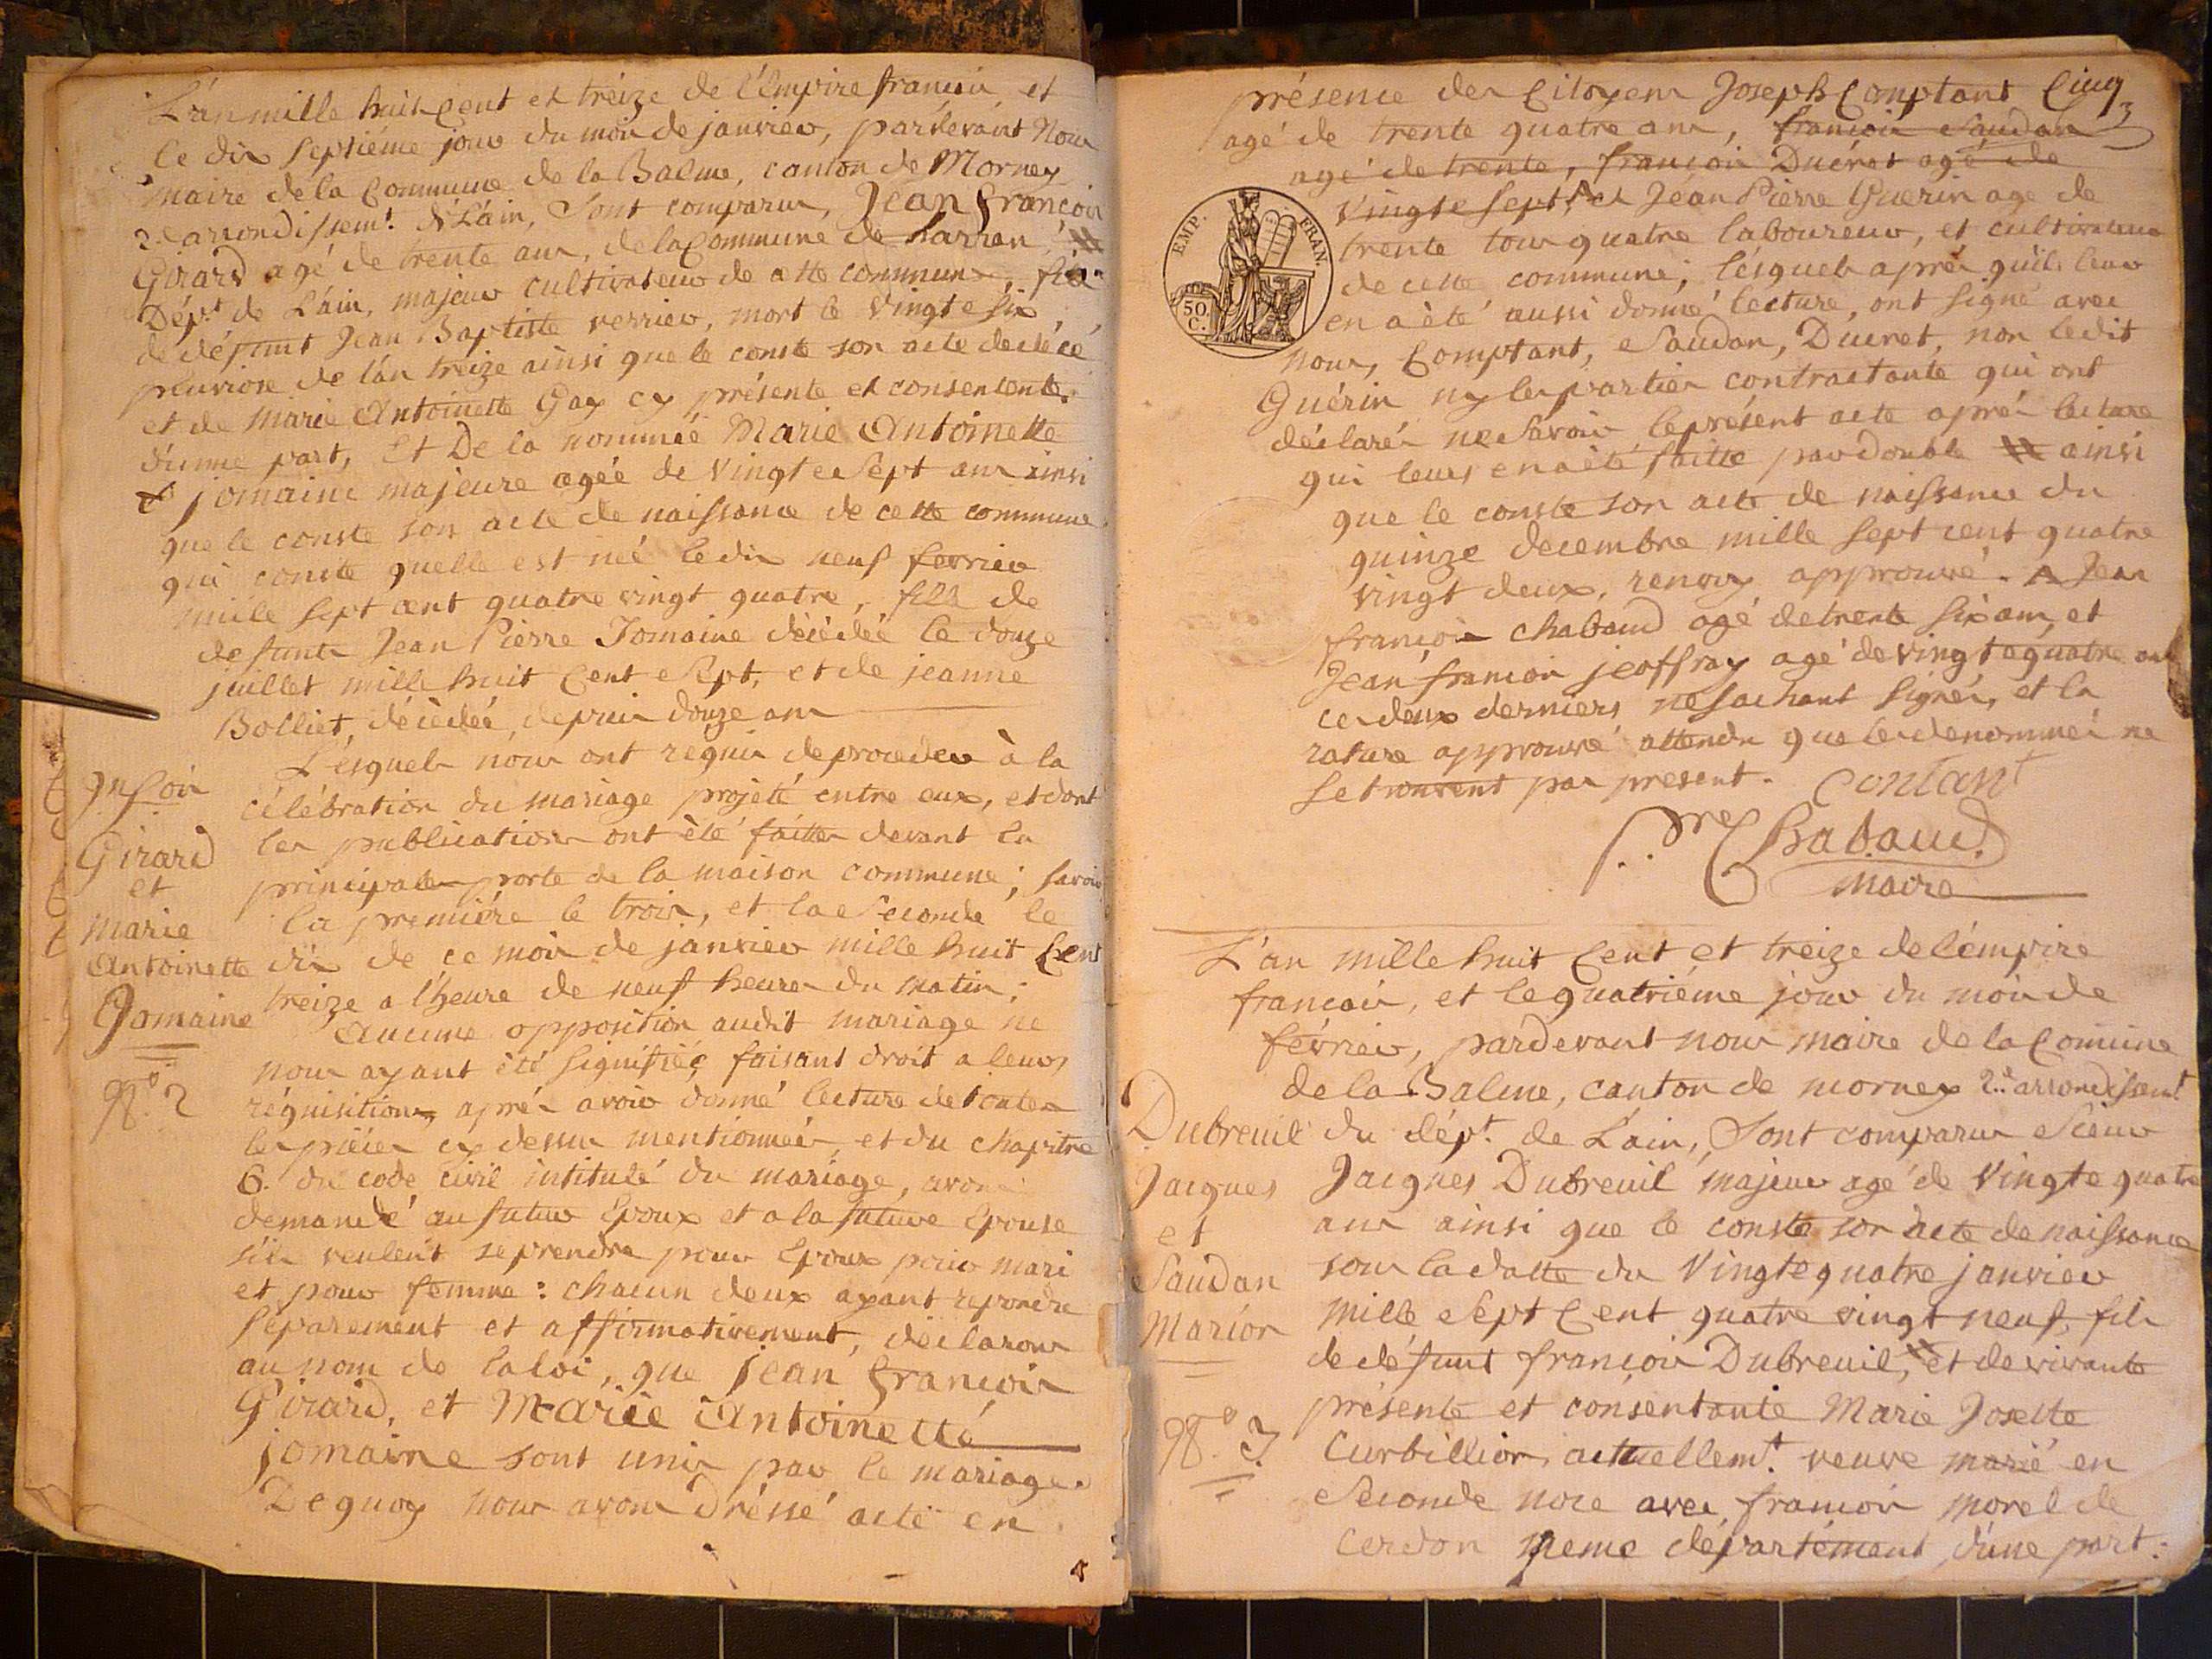 L'an mille huit Cent et treize de l'émpire francois, et
le dix septiéme jour du mois de janvier, pardevant Nous
maire de la Commune de la Balme, canton de Mornay
2.e arrondissem.t de L'ain, Sont comparus, Jean francois
Girard agé de trente ans, de la Commune de
Dép.t de L'ain, majeur cultivateur de cette commune, fils
de défunt Jean Baptiste verrier, mort le Vingte six
pluviose de l'an treize ainsi que le conste son acte de décé
et de Marie Antoinette Gay cy présente et consentente.
d'unne part, Et De la nommée Marie Antoinette
jomaine majeure agée de Vingte Sept ans ainsi
que le conste son acte de naissance de cette commune
qui conste quelle est neé le dix neuf fevrier
mille sept cent quatre vingt quatre, fille de
defunts Jean Pierre Jomaine décédée le douze
juillet mille huit Cent Sept, et de jeanne
Bolliet, décédée, depuis douze ans
Lésquels nous ont requis de proceder à la
célébration du mariage projété entre eux, et dont
les publications ont èté faittes devant la
principale porte de la maison commune; savoir
la premiére le trois, et la Seconde le
dix de ce mois de janvier mille huit Cent
treize a lheure de neuf heures du matin;
Aucune opposition audit mariage ne
nous ayant été signifiée, faisant droit a leurs
réquisitions, aprés avoir donné lecture de toutes
les piéces cy dessus mentionnées, et du chapitre
6. du code civil intitulé du mariage, avons
demandé au futur Epoux et a la future Epouse
s'ils veulent se prendre pour Epoux pour mari
et pour femme: chacun deux ayant repondre
séparement et affirmativement, déclarons
au nom de la loi, que jean francois
Girard, et Marie Antoinette
jomaine sont unis par le mariage.
De quoy nous avons dréssé acte en
Girard
et
Marie
Antoinette
Jomaine
N.o 2
présence des Citoyens Joseph Comptant Cinq
agé de trente quatre ans, francois Saudan
agé de trente, francois Ducret agé de
Vingte sept, et Jean Pierre Guerin age de
trente tous quatre laboureur, et cultivateurs
de cette commune; lésquels aprés qu'il leur
en a èté aussi donné lecture, ont signé avec
nous, Comptant, Saudan, Ducret, non ledit
Guérin ny les parties contractante qui ont
déclarés ne Savoir, le présent acte aprés lecture
qui leurs en a èté faitte par double ainsi
que le conste son acte de naissance du
quinze decembre mille sept cent quatre
vingt deux, renvoy approuvé. Jean
francois chabaud agé de trente six ans, et
Jean francois jeoffray agé de vingte quatre ans
ces deux derniers ne sachant signér, et la
rature approuvé attendu que les denommés ne
se trouvent pas present. Contant
EMP. FRAN.
50.
C.
Chabaud
Maire
L'an mille huit Cent et treize de l'émpire
francais, et le quatriéme jour du mois de
février, pardevant nous maire de la Comune
de la Balme, canton de mornay 2.e arrondissem.t
du dép.t de L'ain, Sont comparus Sieur
Jacques Dubreuil majeur agé de Vingte quatre
ans ainsi que le conste son acte de naissance
sous la datte du Vingte quatre janvier
Mille Sept Cent quatre vingt neuf, fils
de défunt francois Dubreuil, et de vivante
présente et consentante Marie Josette
Curbillion, actuellem.t veuve marié en
Seconde noce avec francois morel de
Cerdon meme département, d'une part:
Dubreuil
Jacques
et
Saudan
Marion
N.o 3.